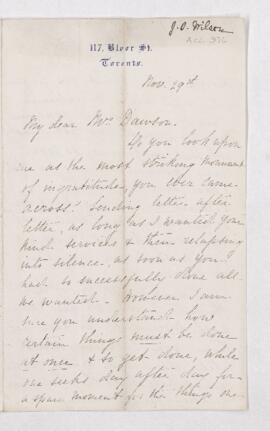 J. O. Wilson
ACC 376
117, Bloor St.
Toronto.
Nov. 29th
My dear Mrs Dawson.
Do you look upon
me as the most striking monument
of ingratitude, you ever came
across? Sending letter after
letter, as long as I wanted your
kind services & then relapsing
into silence, as soon as you
had so successfully done all
we wanted. However I am
sure you understand how
certain things must be done
at once & so get done, while
one seeks day after day for
a spare moment for the things one